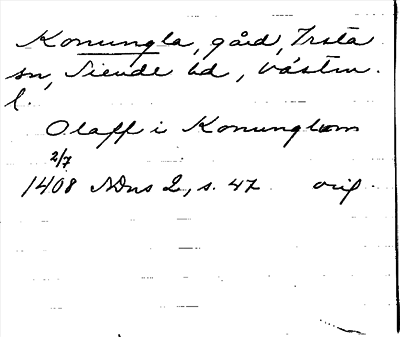 Konungla, gård, Irsta
sn, Siende hd, Västm.
l.
Olaff i Konunglom
2/7
1408 NDns 2, s. 47 orig.